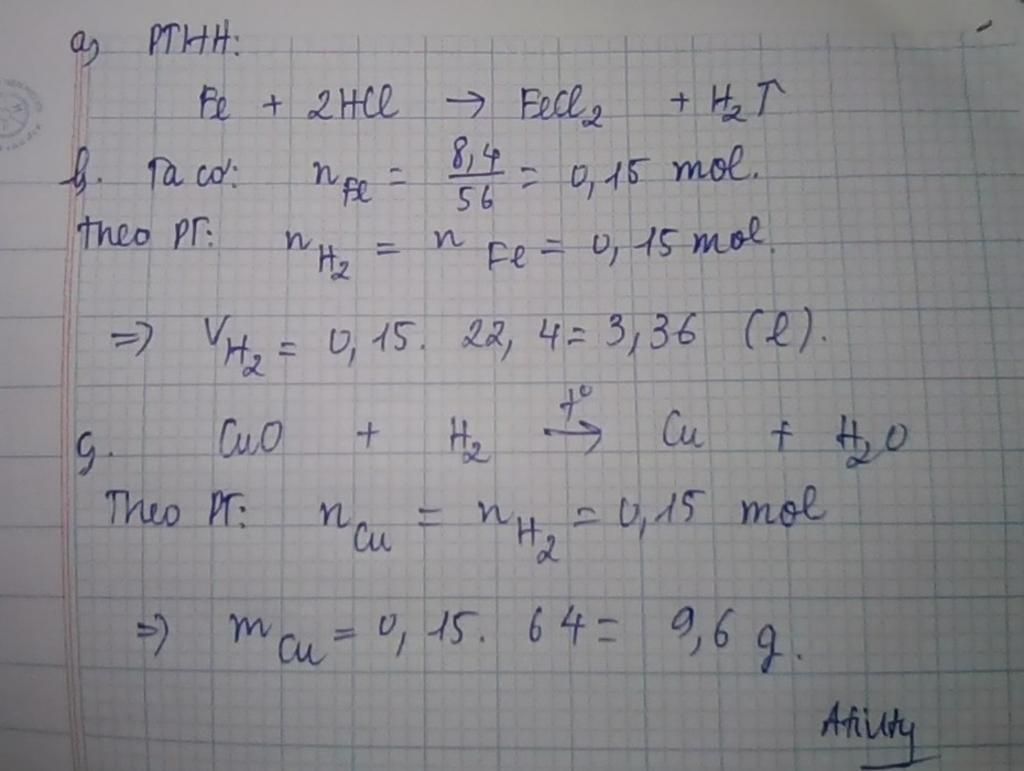 a) PTHH:
Fe + 2HCl → FeCl₂ + H₂↑
b. Ta có: n_Fe = 8,4/56 = 0,15 mol.
Theo PT: n_H₂ = n_Fe = 0,15 mol.
=> V_H₂ = 0,15. 22,4 = 3,36 (l).
c. CuO + H₂ —t°→ Cu + H₂O
Theo PT: n_Cu = n_H₂ = 0,15 mol
=> m_Cu = 0,15. 64 = 9,6 g.